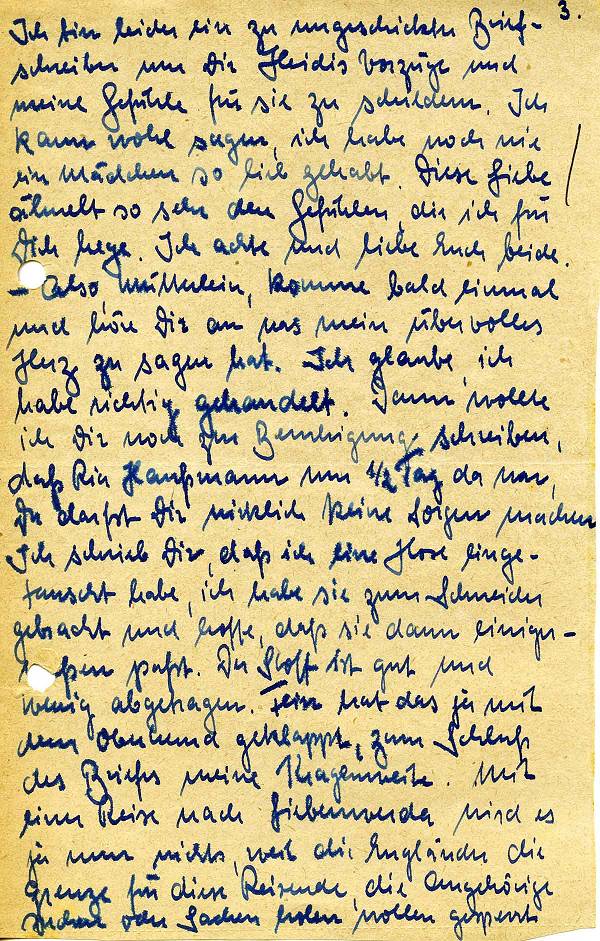 3.
Ich bin leider ein zu ungeschickter Brief-
schreiber um Dir Heidis Vorzüge und
meine Gefühle für sie zu schildern. Ich
kann wohl sagen, ich habe noch nie
ein Mädchen so lieb gehabt. Diese Liebe
ähnelt so sehr den Gefühlen, die ich für
Dich hege. Ich achte und liebe Euch beide.
– Also, Mütterlein, komme bald einmal
und höre Dir an was mein übervolles
Herz zu sagen hat. Ich glaube, ich
habe richtig gehandelt. Dann wollte
ich Dir noch zur Beruhigung schreiben,
daß Ria Haußmann nur 1/2 Tag da war,
Du darfst Dir wirklich keine Sorgen machen
Ich schrieb Dir, daß ich eine Hose einge-
tauscht habe, ich habe sie zum Schneider
gebracht und hoffe, daß sie dann einiger-
maßen paßt. Der Stoff ist gut und
wenig abgetragen. Fein hat das ja mit
dem Oberhemd geklappt, zum Schluß
des Briefes meine Kragenweite. Mit
einer Reise nach Liebenwerda wird es
ja nun nichts, weil die Engländer die
Grenze für diese Reisende, die Angehörige
suchen oder Sachen holen wollen gesperrt